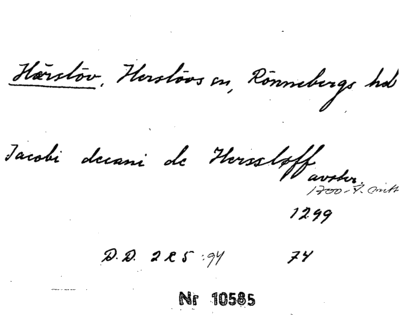 Härslöv, Herslövs sn, Rönnebergs hd
Jacobi decani de Herssløff
avskr.
1700-t. mitt
1299
D.D. 2 R 5 :94 74
Nr 10585